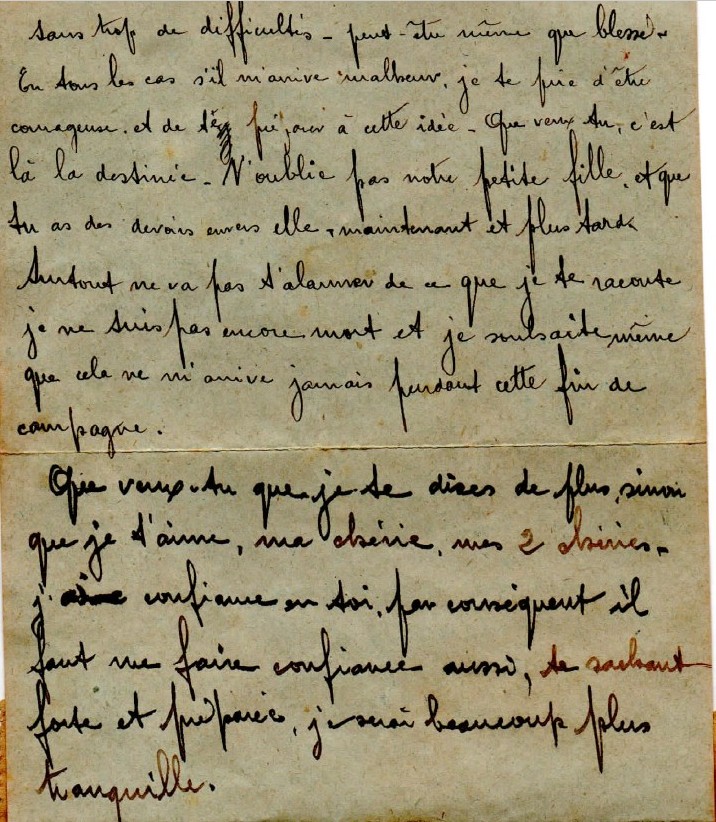 sans trop de difficultés - peut-être même que blessé.
En tous les cas s'il m'arrive malheur, je te prie d'être
courageuse. et de te préparer à cette idée - Que veux tu, c'est
là la destinée - N'oublie pas notre petite fille, et que
tu as des devoirs envers elle, maintenant et plus tard.
Surtout ne va pas t'alarmer de ce que je te raconte
je ne suis pas encore mort et je souhaite même
que cela ne m'arrive jamais pendant cette fin de
campagne.
Que veux-tu que je te dises de plus, sinon
que je t'aime, ma chérie, mes 2 chéries.
j'ai confiance en toi, par conséquent il
faut me faire confiance aussi, te sachant
forte et préparée, je serai beaucoup plus
tranquille.